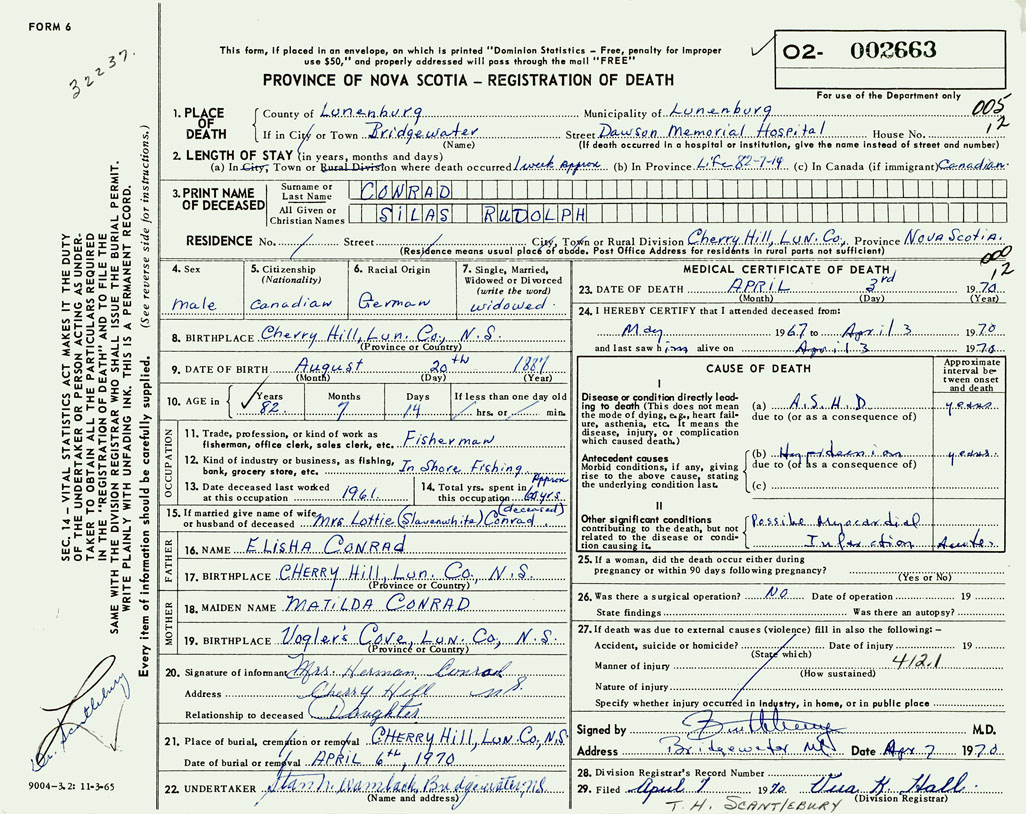 FORM 6
32237.
This form, if placed in an envelope, on which is printed "Dominion Statistics – Free, penalty for improper
use $50," and properly addressed will pass through the mail "FREE"
PROVINCE OF NOVA SCOTIA – REGISTRATION OF DEATH
O2- 002663
For use of the Department only
005
12
1. PLACE OF DEATH
County of Lunenburg Municipality of Lunenburg
If in City or Town Bridgewater Street Dawson Memorial Hospital House No.
(Name) (If death occurred in a hospital or institution, give the name instead of street and number)
2. LENGTH OF STAY (in years, months and days)
(a) In City, Town or Rural Division where death occurred 1 week Approx (b) In Province Life 82-7-14 (c) In Canada (if immigrant) Canadian.
3. PRINT NAME OF DECEASED
Surname or Last Name CONRAD
All Given or Christian Names SILAS RUDOLPH
RESIDENCE No. / Street / City, Town or Rural Division Cherry Hill, Lun. Co., Province Nova Scotia.
(Residence means usual place of abode. Post Office Address for residents in rural parts not sufficient)
000
12
4. Sex
male
5. Citizenship
(Nationality)
Canadian
6. Racial Origin
German
7. Single, Married,
Widowed or Divorced
(write the word)
widowed.
8. BIRTHPLACE Cherry Hill, Lun. Co., N.S.
(Province or Country)
9. DATE OF BIRTH August 20th 1887
(Month) (Day) (Year)
10. AGE in Years Months Days If less than one day old
82. 7 14 hrs. or min.
OCCUPATION
11. Trade, profession, or kind of work as
fisherman, office clerk, sales clerk, etc. Fisherman
12. Kind of industry or business, as fishing,
bank, grocery store, etc. In Shore Fishing
13. Date deceased last worked
at this occupation 1961.
14. Total yrs. spent in
this occupation Approx 60 yrs.
15. If married give name of wife
or husband of deceased Mrs. Lottie (Slavenwhite) Conrad (deceased)
FATHER
16. NAME ELISHA CONRAD
17. BIRTHPLACE CHERRY Hill, Lun. Co., N.S.
(Province or Country)
MOTHER
18. MAIDEN NAME MATILDA CONRAD
19. BIRTHPLACE Vogler's Cove, Lun. Co, N.S.
(Province or Country)
20. Signature of informant Mrs. Herman Conrad
Address Cherry Hill N.S.
Relationship to deceased Daughter
21. Place of burial, cremation or removal CHERRY Hill, Lun. Co, N.S.
Date of burial or removal APRIL 6th, 1970
22. UNDERTAKER Bridgewater, NS
(Name and address)
MEDICAL CERTIFICATE OF DEATH
23. DATE OF DEATH APRIL 3rd 1970
(Month) (Day) (Year)
24. I HEREBY CERTIFY that I attended deceased from:
May 1967 to April 3 1970
and last saw him alive on April 3 1970
CAUSE OF DEATH
Approximate interval between onset and death
I
Disease or condition directly leading to death (This does not
mean the mode of dying, e.g., heart failure, asthenia, etc. It means the
disease, injury, or complication
which caused death.)
(a) A.S.H.D years
due to (or as a consequence of)
Antecedent causes
Morbid conditions, if any, giving
rise to the above cause, stating
the underlying condition last.
(b) years
due to (or as a consequence of)
(c)
II
Other significant conditions
contributing to the death, but not
related to the disease or condition
causing it.
Possible Myocardial
Infarction Acute.
25. If a woman, did the death occur either during
pregnancy or within 90 days following pregnancy?
(Yes or No)
26. Was there a surgical operation? NO Date of operation 19
State findings Was there an autopsy?
27. If death was due to external causes (violence) fill in also the following: –
Accident, suicide or homicide? Date of injury 19
(State which)
Manner of injury 412.1
(How sustained)
Nature of injury
Specify whether injury occurred in industry, in home, or in public place
Signed by M.D.
Address Bridgewater NS Date Apr 7 1970
28. Division Registrar's Record Number
29. Filed April 9 1970 K. Hall
(Division Registrar)
T. H. SCANTLEBURY
SEC. 14 – VITAL STATISTICS ACT MAKES IT THE DUTY
OF THE UNDERTAKER OR PERSON ACTING AS UNDER-
TAKER TO OBTAIN ALL THE PARTICULARS REQUIRED
IN THE "REGISTRATION OF DEATH" AND TO FILE THE
SAME WITH THE DIVISION REGISTRAR WHO SHALL ISSUE THE BURIAL PERMIT.
WRITE PLAINLY WITH UNFADING INK. THIS IS A PERMANENT RECORD.
Every item of information should be carefully supplied. (See reverse side for instructions.)
Dr. Scantlebury
9004-3.2: 11-3-65